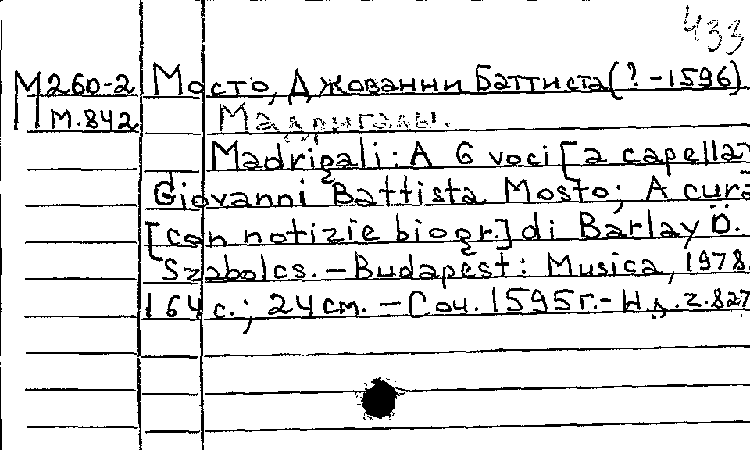 433
М260-2 Мосто, Джованни Баттиста (? - 1596)
М.842 Мадригалы.
Madrigali: A 6 voci [a capella]
Giovanni Battista Mosto; A cura
[con notizie biogr.] di Barlay Ö.
Szabolcs. - Budapest: Musica, 1978.
164 с.; 24 см. - Соч. 1595г. - Н.д. Z.827